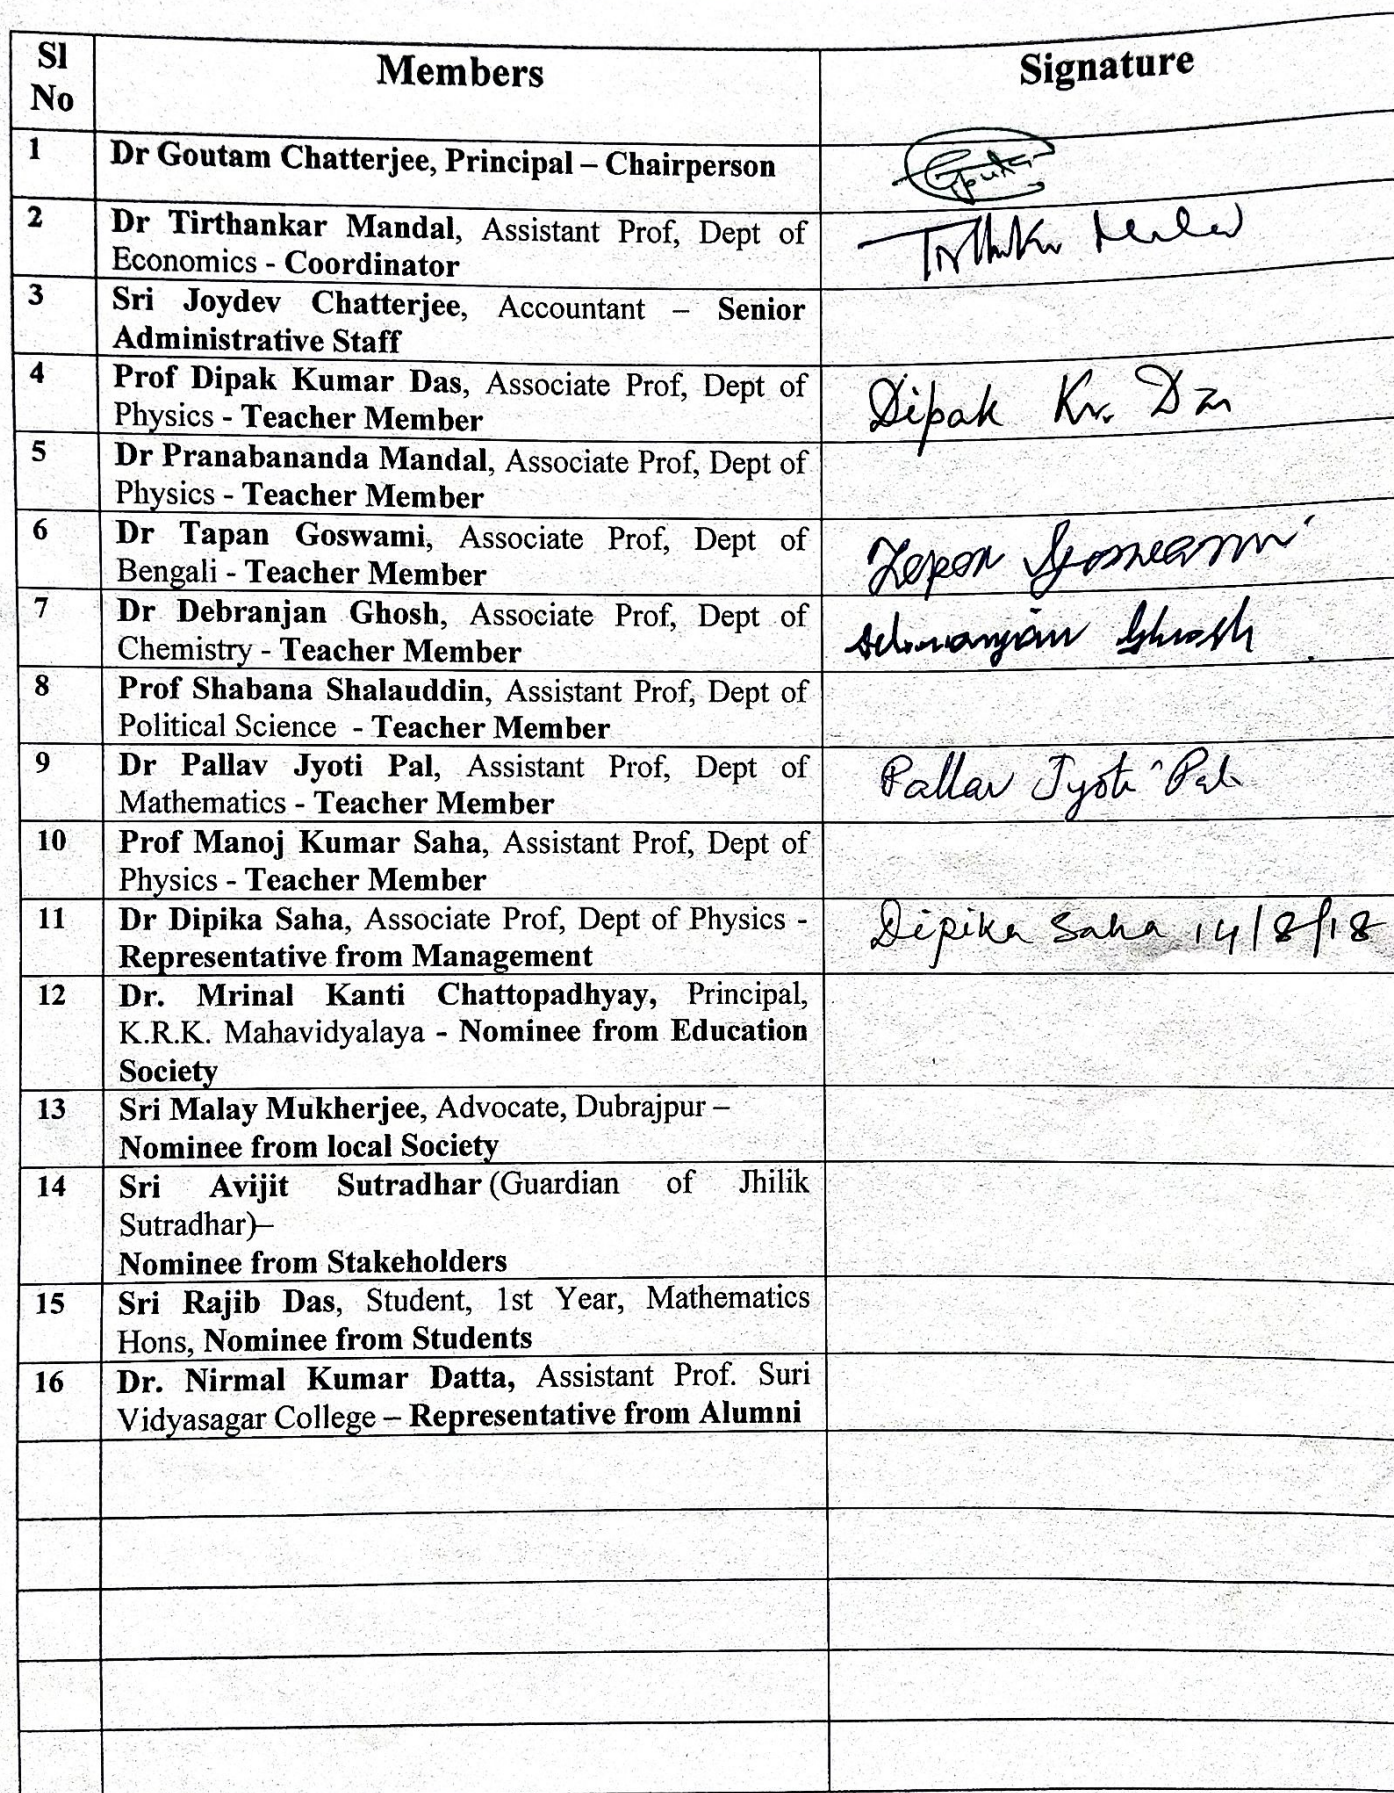 Sl No Members Signature
1 Dr Goutam Chatterjee, Principal – Chairperson
2 Dr Tirthankar Mandal, Assistant Prof, Dept of
Economics - Coordinator
3 Sri Joydev Chatterjee, Accountant – Senior
Administrative Staff
4 Prof Dipak Kumar Das, Associate Prof, Dept of Dipak Kr. Das
Physics - Teacher Member
5 Dr Pranabananda Mandal, Associate Prof, Dept of
Physics - Teacher Member
6 Dr Tapan Goswami, Associate Prof, Dept of Tapan Goswami
Bengali - Teacher Member
7 Dr Debranjan Ghosh, Associate Prof, Dept of Debranjan Ghosh
Chemistry - Teacher Member
8 Prof Shabana Shalauddin, Assistant Prof, Dept of
Political Science - Teacher Member
9 Dr Pallav Jyoti Pal, Assistant Prof, Dept of Pallav Jyoti Pal
Mathematics - Teacher Member
10 Prof Manoj Kumar Saha, Assistant Prof, Dept of
Physics - Teacher Member
11 Dr Dipika Saha, Associate Prof, Dept of Physics - Dipika Saha 14/8/18
Representative from Management
12 Dr. Mrinal Kanti Chattopadhyay, Principal,
K.R.K. Mahavidyalaya - Nominee from Education
Society
13 Sri Malay Mukherjee, Advocate, Dubrajpur –
Nominee from local Society
14 Sri Avijit Sutradhar (Guardian of Jhilik
Sutradhar)–
Nominee from Stakeholders
15 Sri Rajib Das, Student, 1st Year, Mathematics
Hons, Nominee from Students
16 Dr. Nirmal Kumar Datta, Assistant Prof. Suri
Vidyasagar College – Representative from Alumni